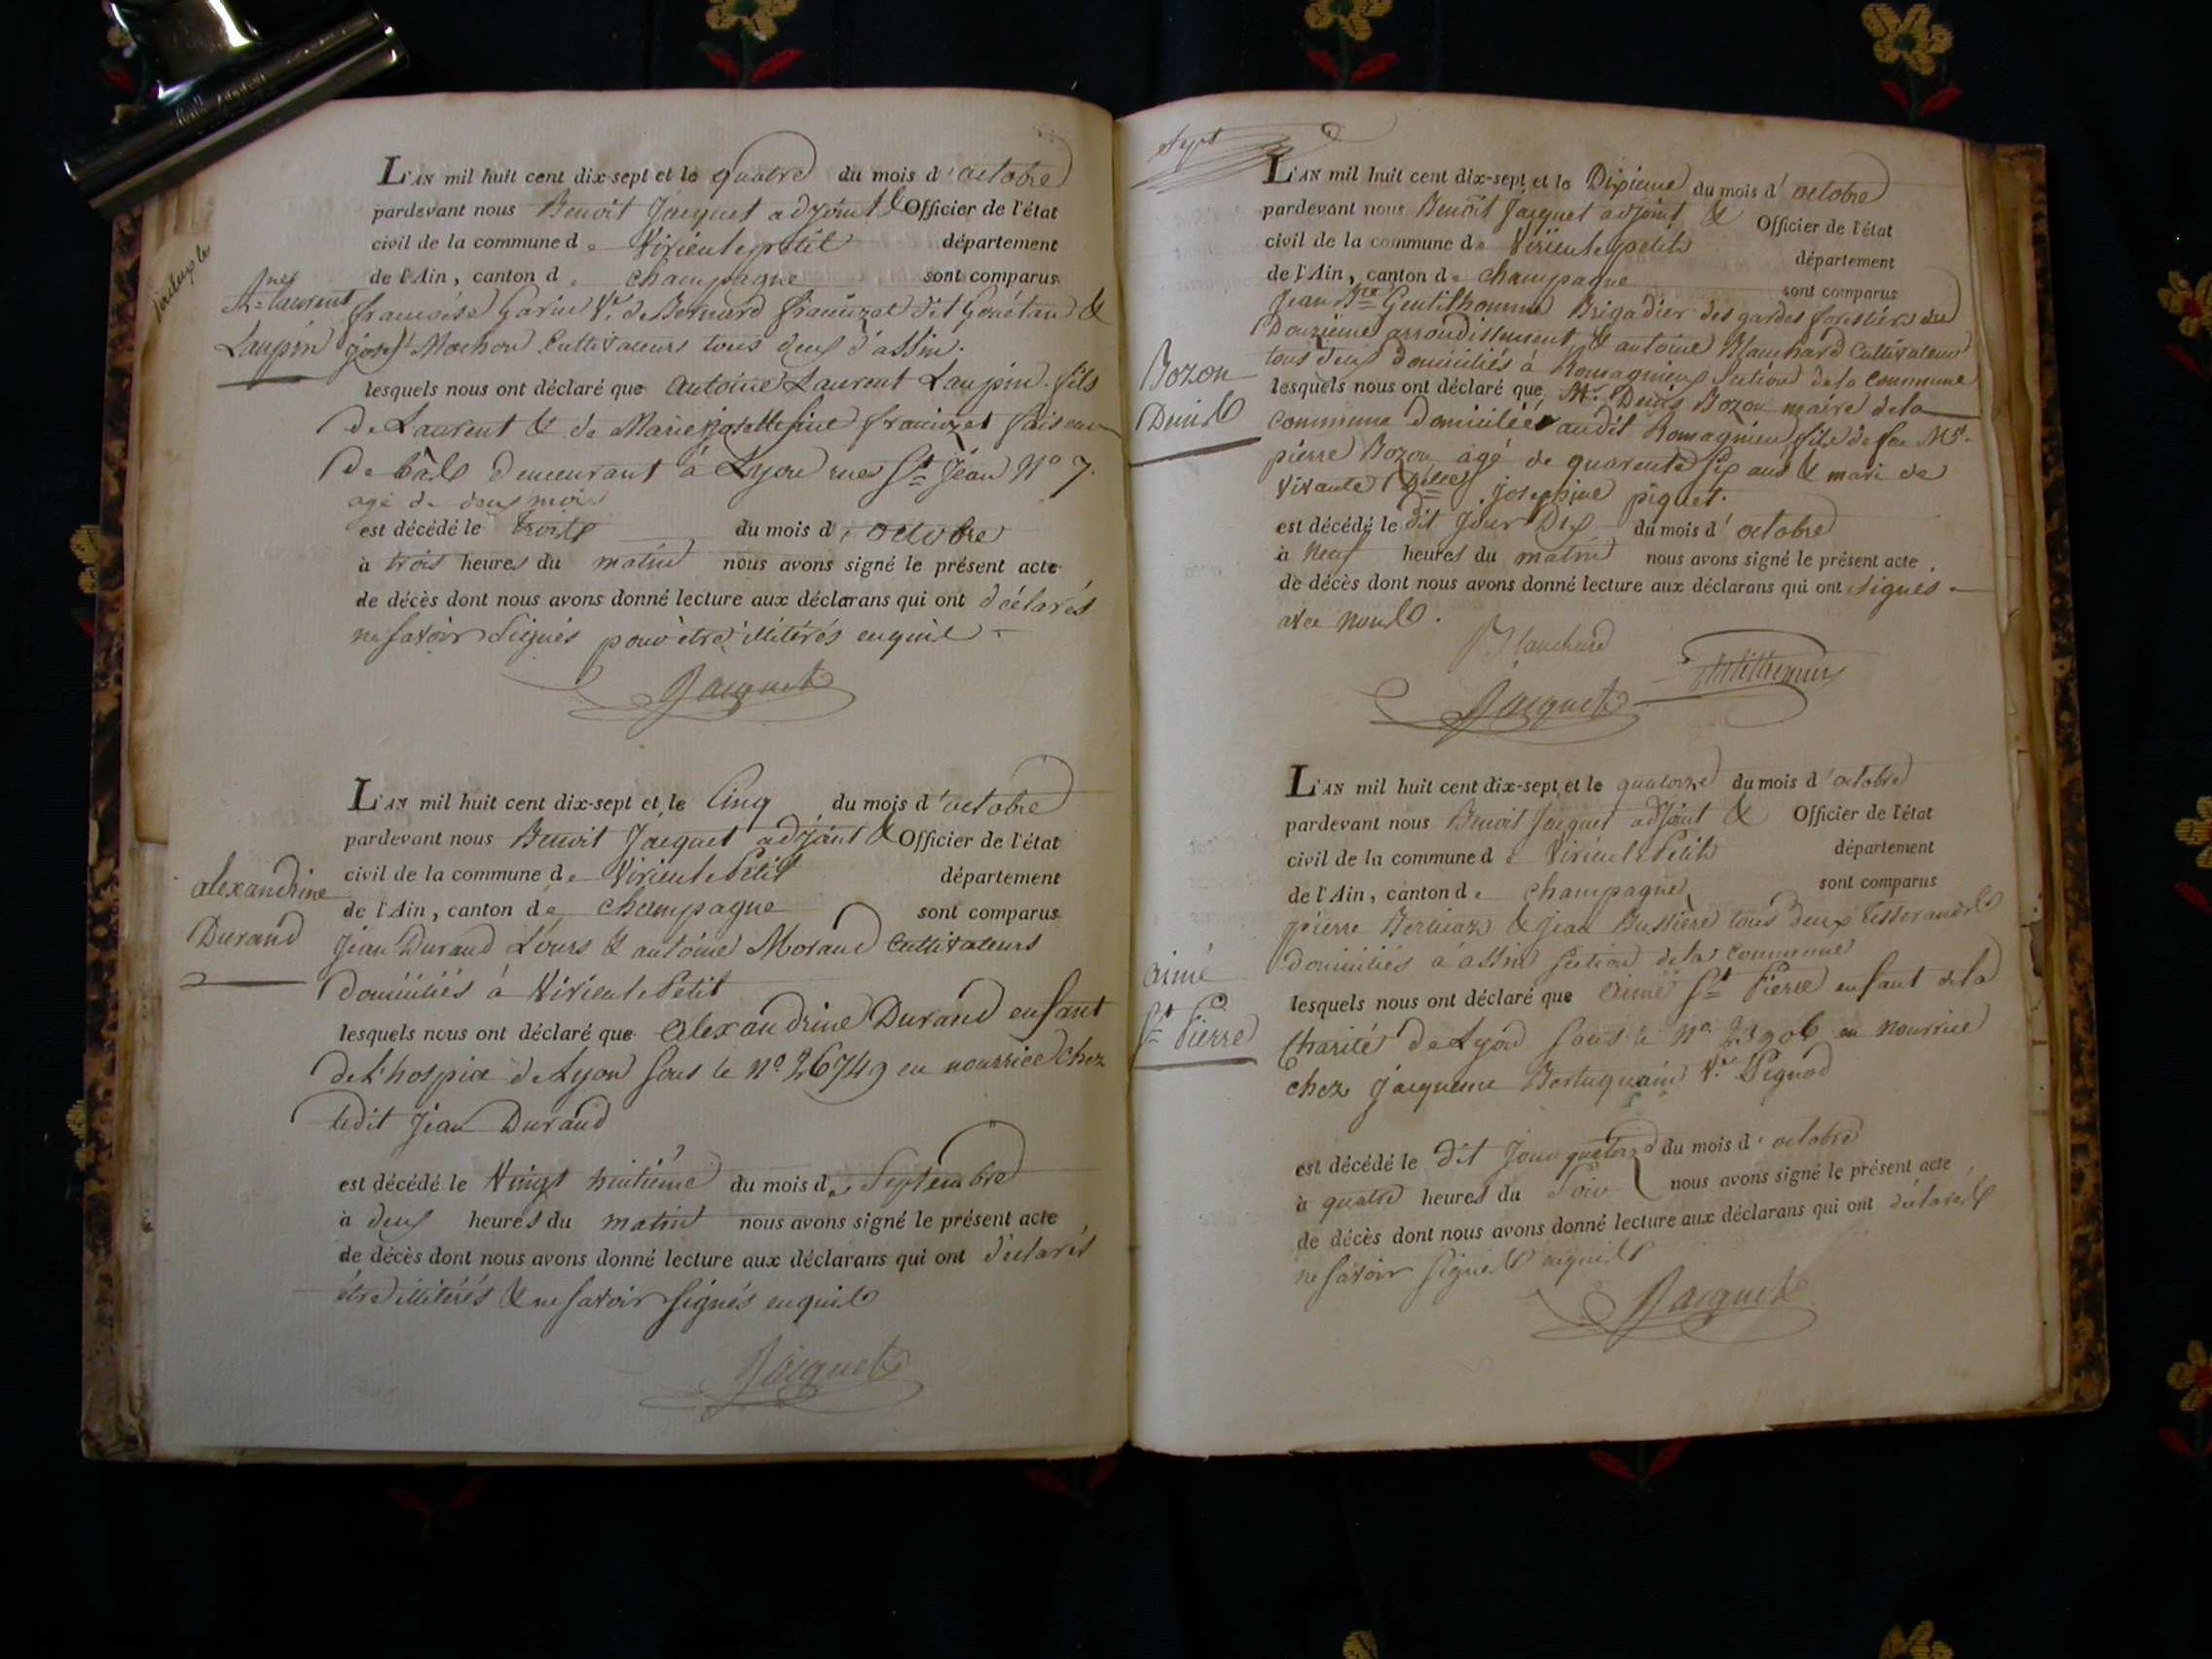 L'AN mil huit cent dix-sept et le quatre du mois d'octobre
pardevant nous Benoit Jacquet adjoint & Officier de l'état
civil de la commune de Virieulepetit département
de l'Ain, canton de champagne sont comparus
Ane Laurent
Laupin
francoise Garin Ve. de Bernard francizet dit &
joseph Mochon Cultivateurs tous deux d'assin.
lesquels nous ont déclaré que antoine Laurent Laupin fils
de Laurent & de Marie josette fine francizet faiseur
de bas demeurant à Lyon rue St Jean No 7.
agé de deux mois
est décédé le trois du mois d'octobre
à trois heures du matin nous avons signé le présent acte
de décès dont nous avons donné lecture aux déclarans qui ont déclarés
ne savoir signés pour être illitérés enquis
Jacquet
L'AN mil huit cent dix-sept et le Cinq du mois d'octobre
pardevant nous Benoit Jacquet adjoint & Officier de l'état
civil de la commune de Virieu le Petit département
de l'Ain, canton de champagne sont comparus
alexandrine
Durand
Jean Durand L'ours & antoine Morand Cultivateurs
domiciliés à Virieu le Petit
lesquels nous ont déclaré que alexandrine Durand enfant
de l'hospice de Lyon sous le No. 26749 en nourrice chez
ledit Jean Durand
est décédé le Vingt huitième du mois de Septembre
à deux heures du matin nous avons signé le présent acte
de décès dont nous avons donné lecture aux déclarans qui ont déclarés
être illitérés & ne savoir signés enquis
Jacquet
sept
L'AN mil huit cent dix-sept et le Dixieme du mois d'octobre
pardevant nous Benoit Jacquet adjoint & Officier de l'état
civil de la commune de Virieulepetit département
de l'Ain, canton de champagne sont comparus
Jean Bte Gentilhomme Brigadier des gardes forestiers du
Douzième arrondissement & antoine Blanchard Cultivateur
tous deux domiciliés à Romagnieu Section de la Commune
Bozon
Denis
lesquels nous ont déclaré que Mr. Denis Bozon maire de la
commune domicilié audit Romagnieu fils de feu Mr.
pierre Bozon agé de quarente six ans & mari de
vivante Delle josephine piquet.
est décédé le dit jour Dix du mois d'octobre
à Neuf heures du matin nous avons signé le présent acte
de décès dont nous avons donné lecture aux déclarans qui ont signés
avec nous.
Blanchard
Jacquet
L'AN mil huit cent dix-sept et le quatorze du mois d'octobre
pardevant nous Benoit Jacquet adjoint & Officier de l'état
civil de la commune de Virieu le Petit département
de l'Ain, canton de champagne sont comparus
pierre Berliaz & Jean Bussiere tous deux tisserands
domiciliés à assin section de la commune
aimé
St Pierre
lesquels nous ont déclaré que aimé St Pierre enfant de la
Charité de Lyon sous le No. en nourrice
chez jacquème Ve. Pegnod
est décédé le dit jour quatorze du mois d'octobre
à quatre heures du soir nous avons signé le présent acte
de décès dont nous avons donné lecture aux déclarans qui ont déclarés
ne savoir signés enquis
Jacquet